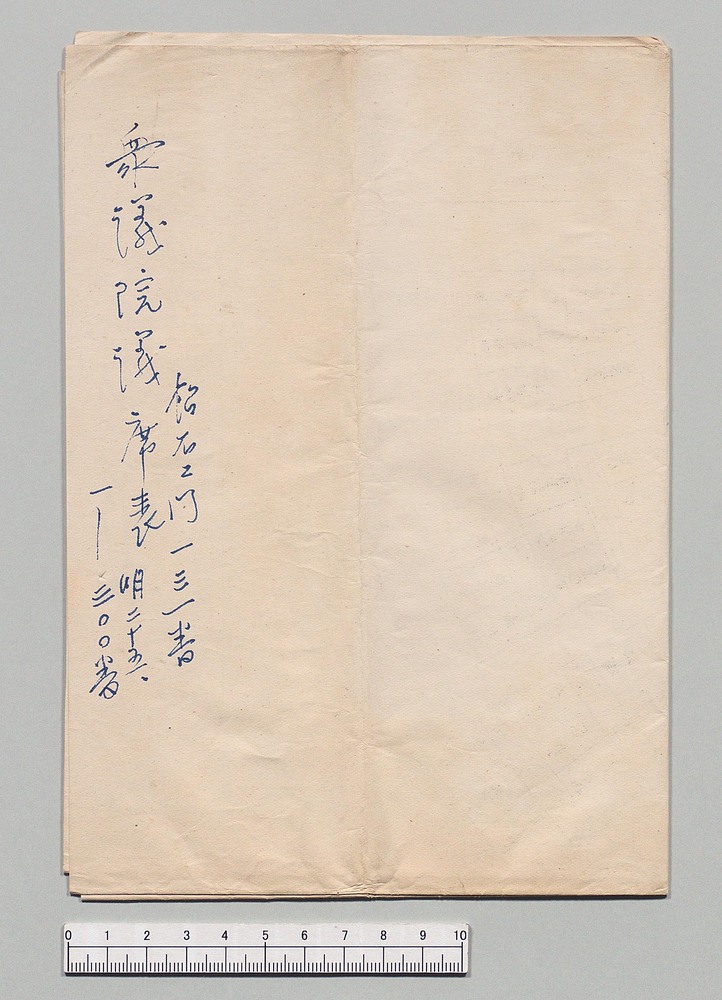 一三一番
衆議院議席表 明二十五
一｜三〇〇番
0 1 2 3 4 5 6 7 8 9 10